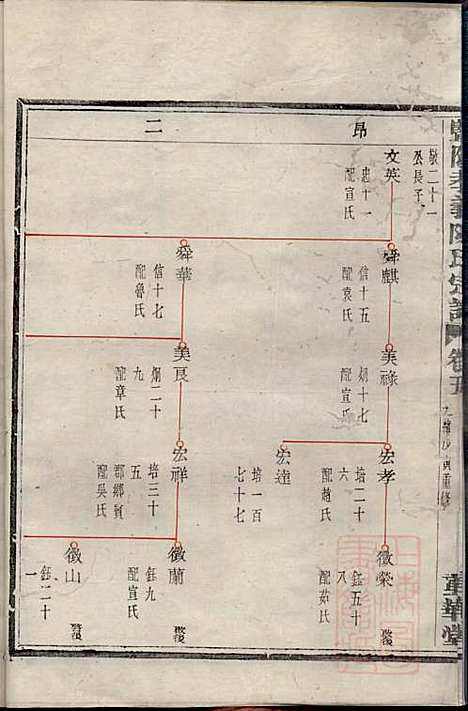 昂
二
敬二十一
公長子
文英
忠十一
配宣氏
舜麒
信十五
配袁氏
舜華
信十七
配魯氏
美祿
炯十七
配宣氏
美良
炯二十
九
配章氏
宏孝
培二十
六
配趙氏
宏達
培一百
七十七
宏祥
培三十
五
鄉賓
配吳氏
徵榮
鈺五十
八
配茹氏
徵蘭
鈺九
配宣氏
徵山
鈺二十
一
氏宗譜
卷五
重修
華堂